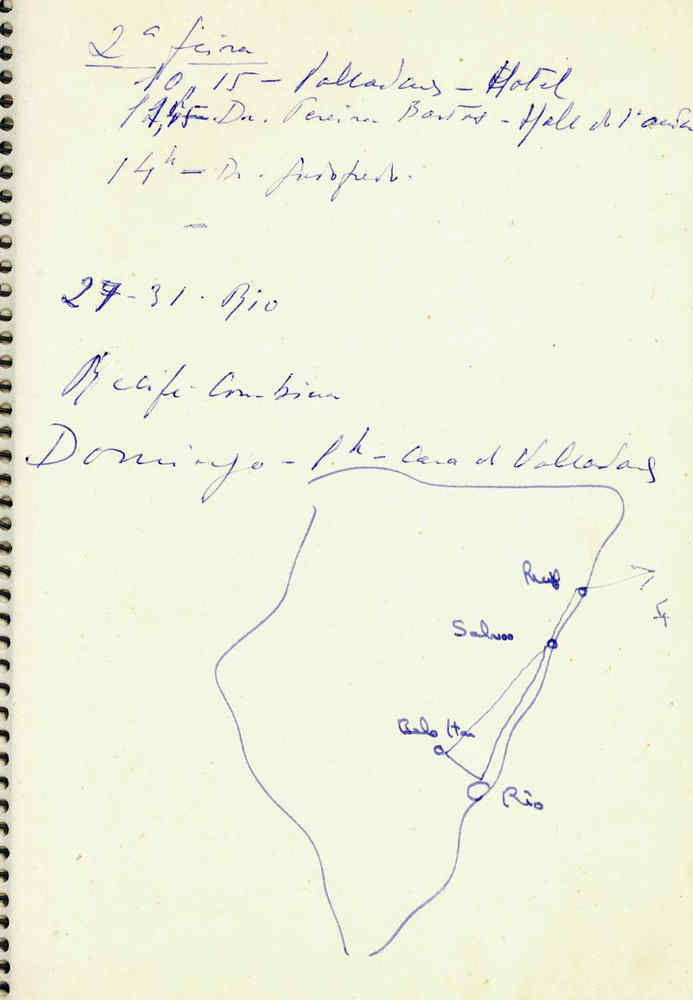 2ª feira
10,15 - Valladares - Hotel
- Dr. Pereira Bastos - Hall do
14h - Dr. Godofredo.
27-31. Rio
Recife
Domingo - h - Casa de Valladares
Recif
Salvao
Belo Hor
Rio